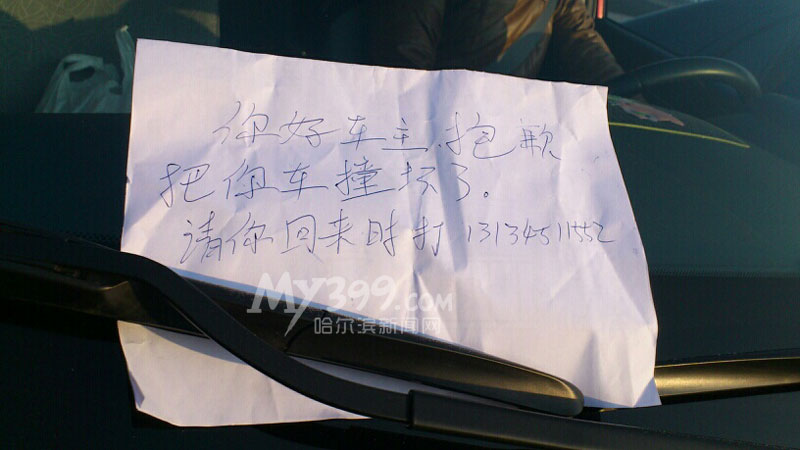 你好车主,抱歉
把你车撞坏了。
请你回来时打 13134511552
My399.COM
哈尔滨新闻网